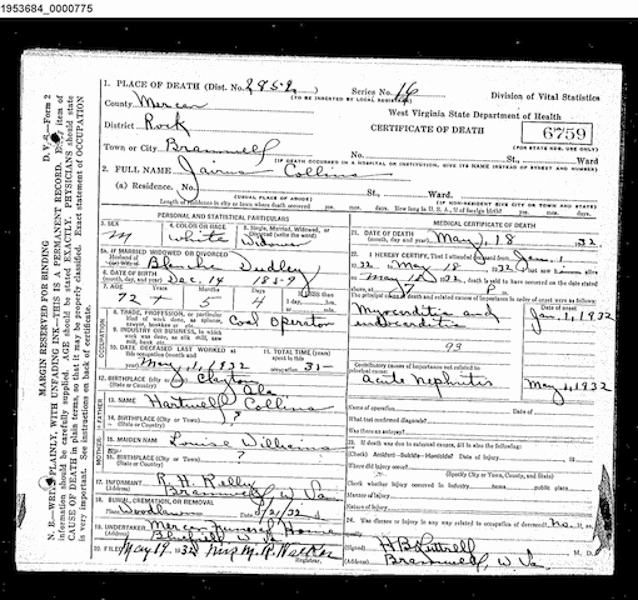 1953684_0000775
MARGIN RESERVED FOR BINDING D. V. S.—Form 2
N. B.—WRITE PLAINLY, WITH UNFADING INK—THIS IS A PERMANENT RECORD. Every item of
information should be carefully supplied. AGE should be stated EXACTLY. PHYSICIANS should state
CAUSE OF DEATH in plain terms, so that it may be properly classified. Exact statement of OCCUPATION
is very important. See instructions on back of certificate.
1. PLACE OF DEATH (Dist. No. 2852) Series No. 16 Division of Vital Statistics
(TO BE INSERTED BY LOCAL REGISTRAR)
County Mercer West Virginia State Department of Health
District Rock CERTIFICATE OF DEATH 6759
(FOR STATE USE ONLY)
Town or City Bramwell No. St., Ward
(IF DEATH OCCURRED IN A HOSPITAL OR INSTITUTION, GIVE ITS NAME INSTEAD OF STREET AND NUMBER)
2. FULL NAME Jairus Collins
(a) Residence. No. St., Ward.
(USUAL PLACE OF ABODE) (IF NON-RESIDENT GIVE CITY OR TOWN AND STATE)
Length of residence in city or town where death occurred yrs. mos. days. How long in U. S. A., if of foreign birth? yrs. mos. days.
PERSONAL AND STATISTICAL PARTICULARS
3. SEX M
4. COLOR OR RACE white
5. Single, Married, Widowed, or Divorced (write the word) Widower
5a. IF MARRIED WIDOWED OR DIVORCED
Blanche Dudley
6. DATE OF BIRTH
(month, day, and year) Dec. 14 1859
7. AGE 72 5 4
8. TRADE, PROFESSION, or particular
kind of work done, as spinner,
sawyer, bookkeeper, etc. Coal Operator
9. INDUSTRY OR BUSINESS, in which
work was done, as silk mill, saw
mill, bank, etc.
10. DATE DECEASED LAST WORKED at
this occupation (month and
year) May 1, 1932
11. TOTAL YEARS (time)
spent in this
occupation 35
12. BIRTHPLACE (city or town) Clayton
(State or Country) Ala
FATHER
13. NAME Hartwell Collins
14. BIRTHPLACE (City or Town) ?
(State or Country)
MOTHER
15. MAIDEN NAME Louise Williams
16. BIRTHPLACE (City or Town) ?
(State or Country)
17. INFORMANT R. H. Kelly
(Address) Bramwell, W. Va.
18. BURIAL, CREMATION, OR REMOVAL
Place Woodlawn 5/21/32
19. UNDERTAKER Mercer Funeral Home
(Address) Bluefield W. Va.
20. FILED May 19, 1932 Mrs. M. R. Walker
Registrar.
MEDICAL CERTIFICATE OF DEATH
21. DATE OF DEATH
(month, day, and year) May 18 1932
22. I HEREBY CERTIFY, That I attended deceased from Jan. 1
1932 to May 18 1932
death is said to have occurred on the date stated
above, at 7 P
The principal cause of death and related causes of importance in order of onset were as follows:
Myocarditis and Jan. 1, 1932
endocarditis
Contributory causes of importance not related to
principal cause:
Acute Nephritis May 1, 1932
Name of operation Date of
What test confirmed diagnosis?
Was there an autopsy?
23. If death was due to external causes, fill in also the following:
(Check) Accident—Suicide—Homicide? Date of Injury 19
Where did injury occur?
(Specify City or Town, County, and State)
Check whether injury occurred in industry home public place
Manner of Injury
Nature of Injury
24. Was disease or injury in any way related to occupation of deceased? No. If so,
(Signed) H B Luttrell M. D.
(Address) Bramwell, W. Va.